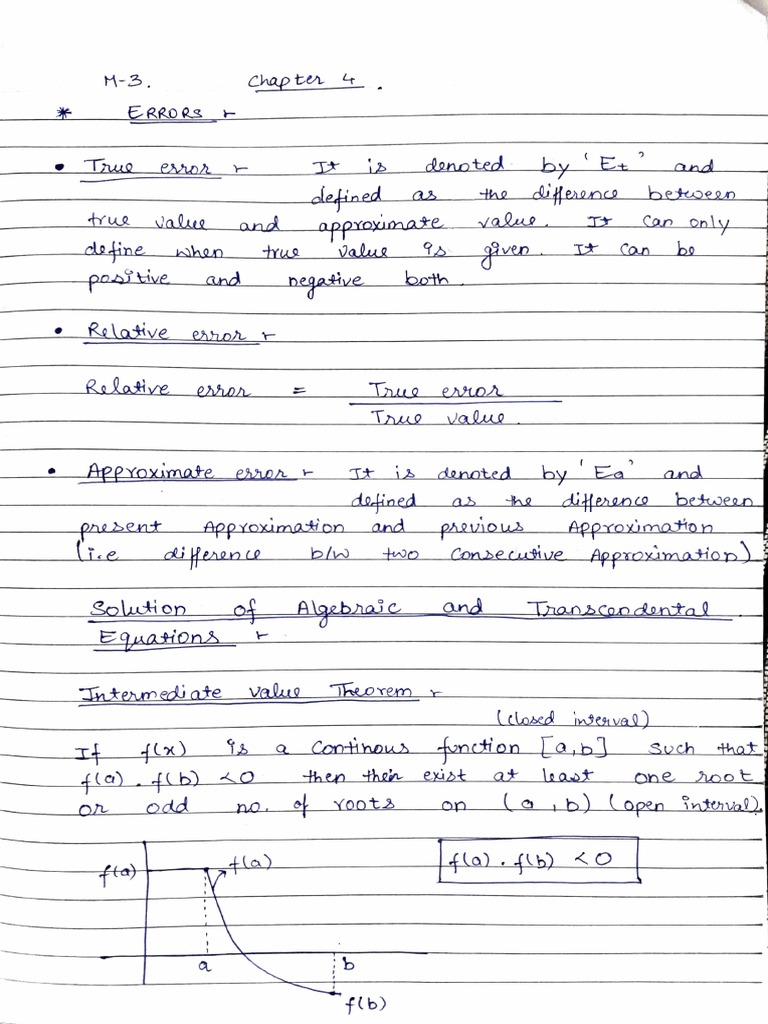 M-3. Chapter 4.
* ERRORS :-
• True error :- It is denoted by 'Et' and
defined as the difference between
true value and approximate value. It can only
define when true value is given. It can be
positive and negative both.
• Relative error :-
Relative error = True error
True value.
• Approximate error :- It is denoted by 'Ea' and
defined as the difference between
present Approximation and previous Approximation
(i.e difference b/w two Consecutive Approximation)
Solution of Algebraic and Transcendental
Equations :-
Intermediate value Theorem :-
(closed interval)
If f(x) is a continous function [a,b] such that
f(a) . f(b) <0 then their exist at least one root
or odd no. of roots on (a,b) (open interval).
f(a) f(a) f(a) . f(b) <0
a b
f(b)